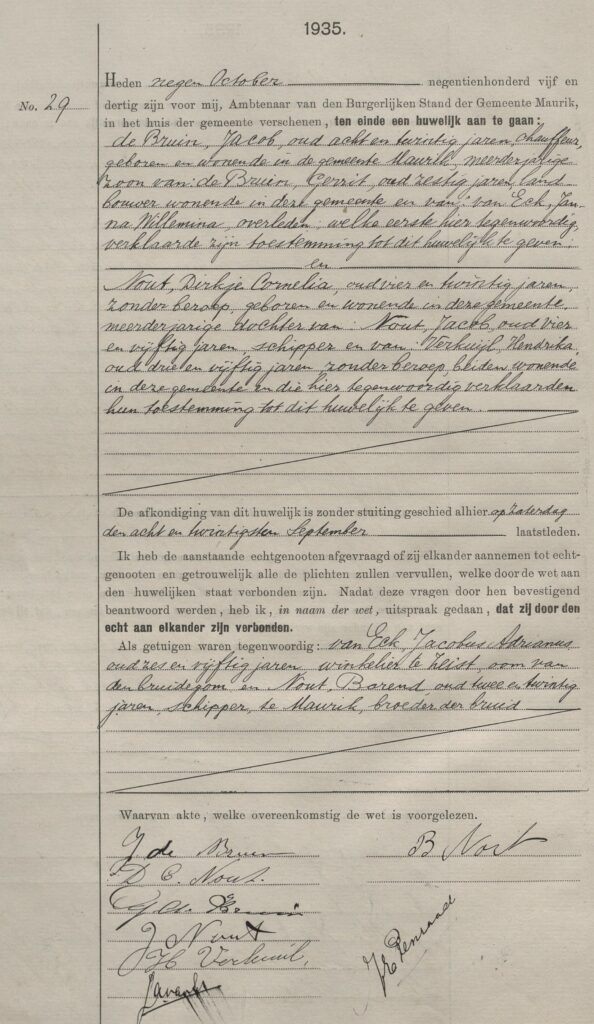 1935.
Heden negen October negentienhonderd vijf en
No. 29
dertig zijn voor mij, Ambtenaar van den Burgerlijken Stand der Gemeente Maurik,
in het huis der gemeente verschenen, ten einde een huwelijk aan te gaan:
de Bruin, Jacob, oud acht en twintig jaren, chauffeur,
geboren en wonende in de gemeente Maurik, meerderjarige
zoon van: de Bruin, Gerrit, oud zestig jaren, land
bouwer wonende in deze gemeente en van: van Eck, Jan
na Willemina, overleden, welke eerste hier tegenwoordig,
verklaarde zijn toestemming tot dit huwelijk te geven:
en
Nout, Dirkje Cornelia, oud vier en twintig jaren,
zonder beroep, geboren en wonende in deze gemeente,
meerderjarige dochter van: Nout, Jacob, oud vier
en vijftig jaren, schipper en van: Verkuijl, Hendrika,
oud drie en vijftig jaren, zonder beroep, beiden wonende
in deze gemeente en die hier tegenwoordig verklaarden
hun toestemming tot dit huwelijk te geven.
De afkondiging van dit huwelijk is zonder stuiting geschied alhier op Zaterdag
den acht en twintigsten September laatstleden.
Ik heb de aanstaande echtgenooten afgevraagd of zij elkander aannemen tot echt-
genooten en getrouwelijk alle de plichten zullen vervullen, welke door de wet aan
den huwelijken staat verbonden zijn. Nadat deze vragen door hen bevestigend
beantwoord werden, heb ik, in naam der wet, uitspraak gedaan, dat zij door den
echt aan elkander zijn verbonden.
Als getuigen waren tegenwoordig: van Eck, Jacobus Adrianus
oud zes en vijftig jaren, winkelier te Zeist, oom van
den bruidegom en Nout, Barend, oud twee en twintig
jaren, schipper, te Maurik, broeder der bruid
Waarvan akte, welke overeenkomstig de wet is voorgelezen.
J de Bruin
B Nout
D C. Nout.
G de Bruin
J Nout
H Verkuil,